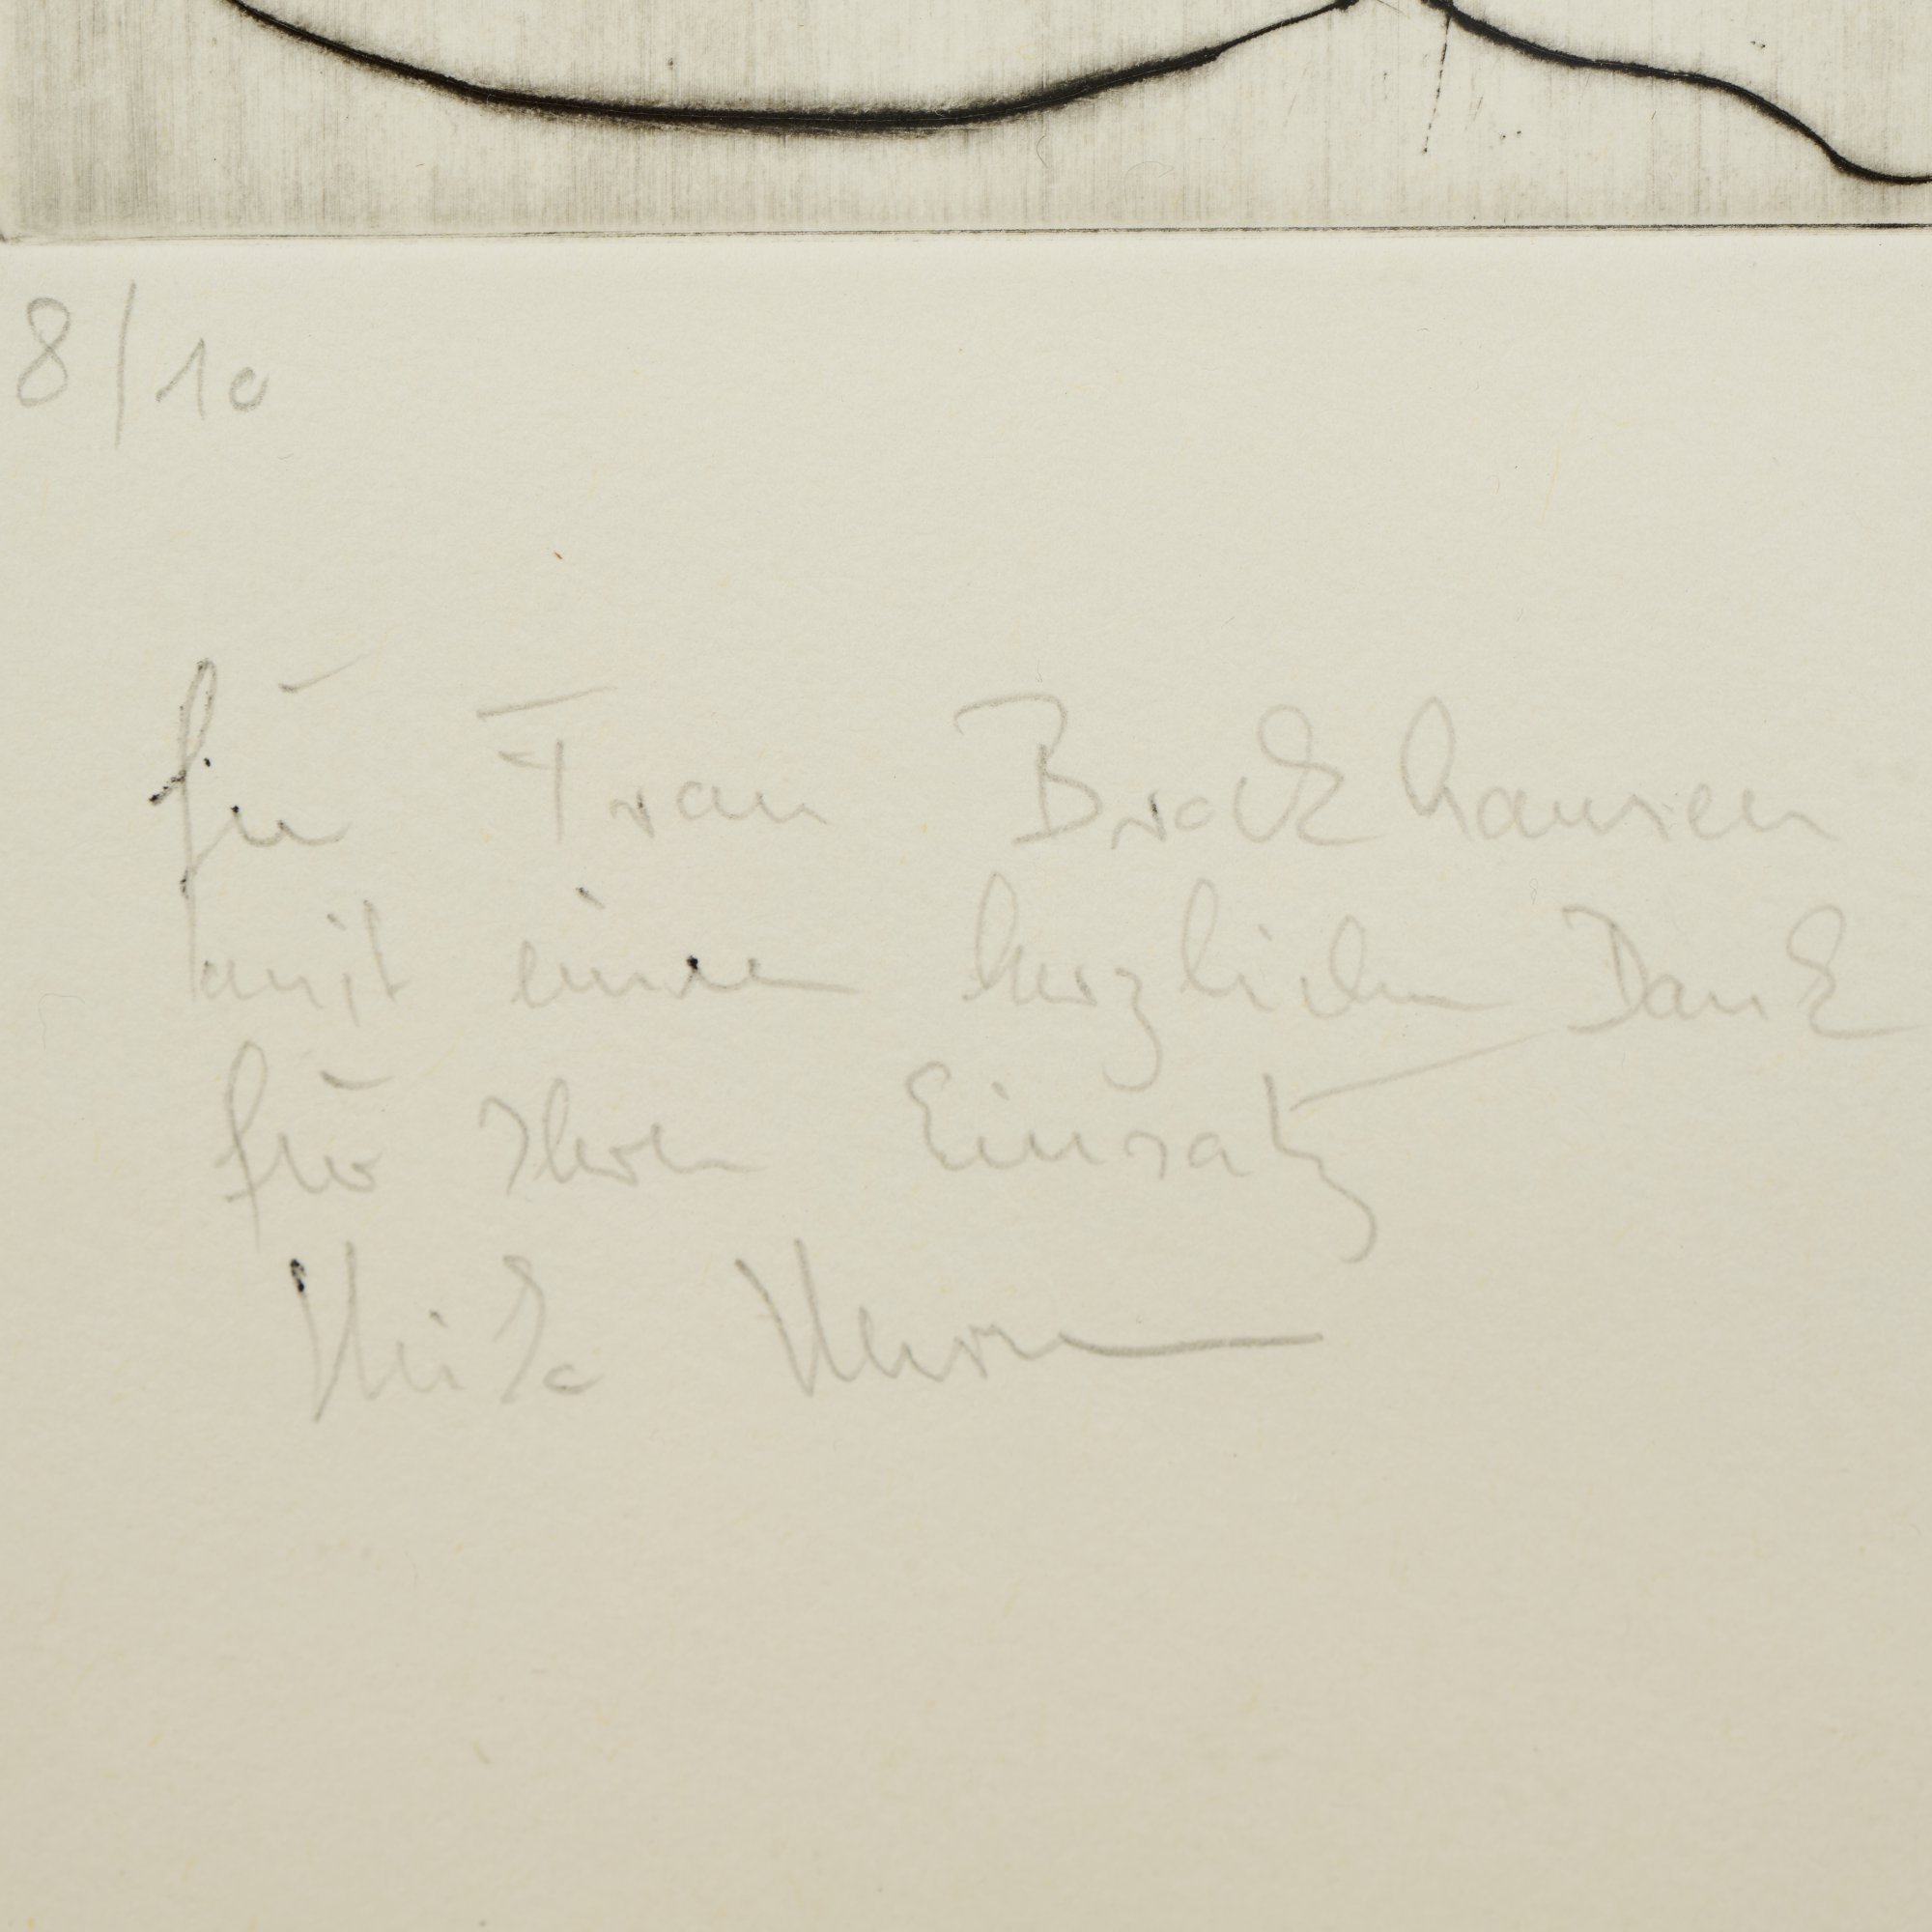 8/10
für Frau Brockhausen
mit einem herzlichen Dank
für Ihren Einsatz